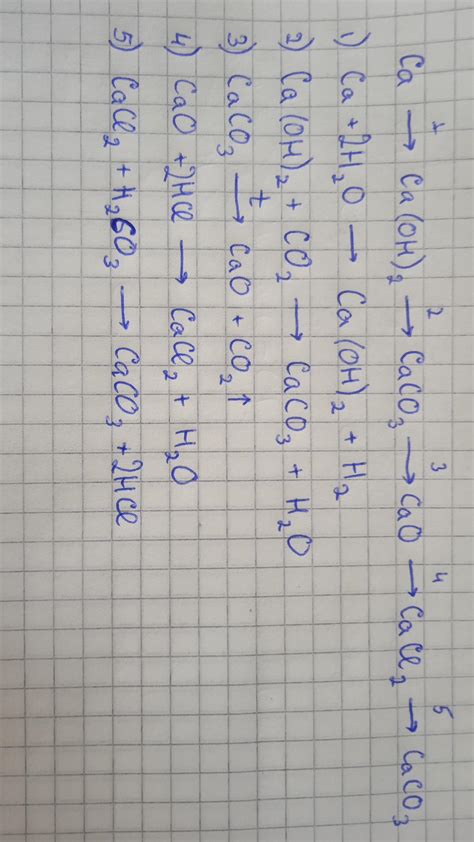 Ca →¹ Ca(OH)₂ →² CaCO₃ →³ CaO →⁴ CaCl₂ →⁵ CaCO₃
1) Ca + 2H₂O → Ca(OH)₂ + H₂
2) Ca(OH)₂ + CO₂ → CaCO₃ + H₂O
3) CaCO₃ →ᵗ CaO + CO₂↑
4) CaO + 2HCl → CaCl₂ + H₂O
5) CaCl₂ + H₂CO₃ → CaCO₃ + 2HCl